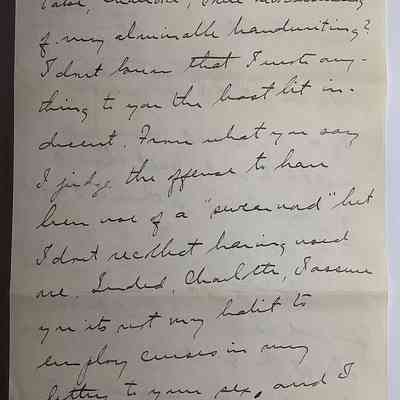 of my admirable handwriting?
I don't know that I wrote any-
thing to you the least bit in-
decent. From what you say
I judge the offense to have
been use of a "swear word" but
I dont recollect having used
one. Indeed, Charlotte, I assure
you its not my habit to
employ curses in my
letters to your sex, and I